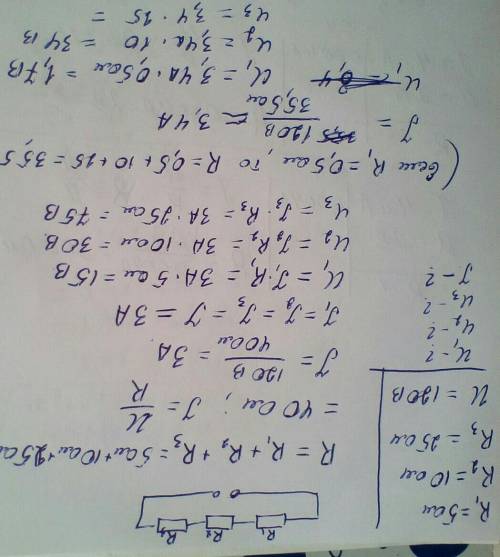 R₁ = 5 Ом
R₂ = 10 Ом
R₃ = 25 Ом
U = 120 В
U₁ - ?
U₂ - ?
U₃ - ?
J - ?
R₁ R₂ R₃
R = R₁ + R₂ + R₃ = 5 Ом + 10 Ом + 25 Ом
= 40 Ом ; J = U/R
J = 120 В / 40 Ом = 3 А
J₁ = J₂ = J₃ = J = 3 А
U₁ = J₁ R₁ = 3 А · 5 Ом = 15 В
U₂ = J₂ R₂ = 3 А · 10 Ом = 30 В
U₃ = J₃ · R₃ = 3 А · 25 Ом = 75 В
(если R₁ = 0,5 Ом, то R = 0,5 + 10 + 25 = 35,5
J = 120 В / 35,5 Ом ≈ 3,4 А
U₁ = 3,4 А · 0,5 Ом = 1,7 В
U₂ = 3,4 А · 10 = 34 В
U₃ = 3,4 · 25 =